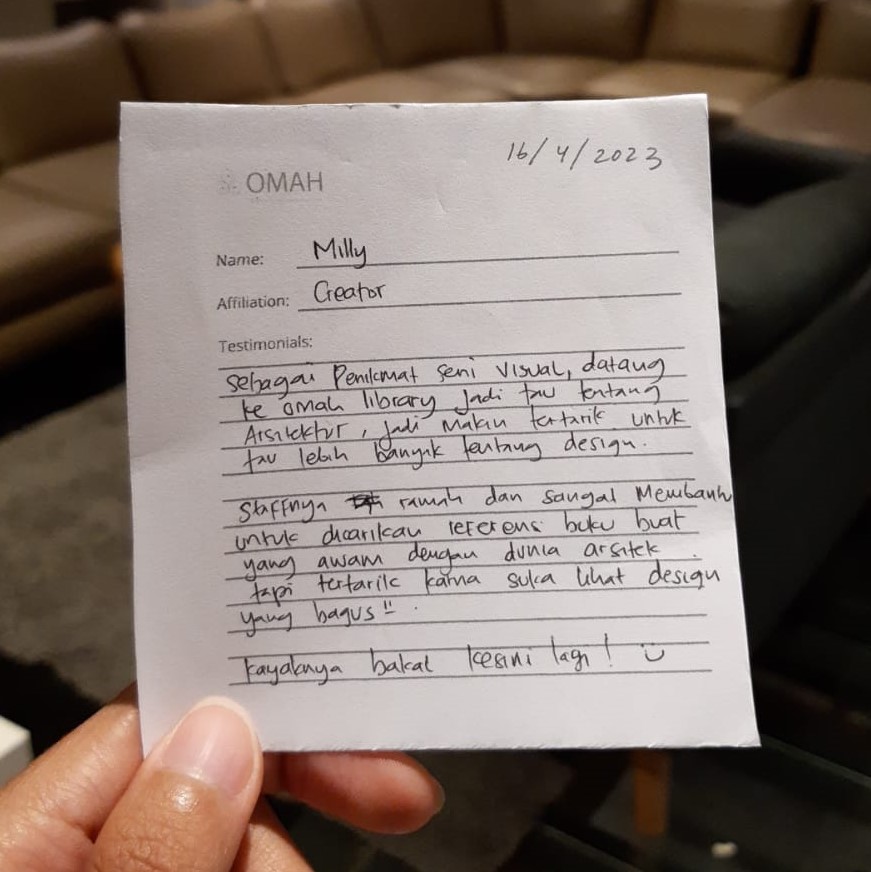 16/4/2023
OMAH
Name: Milly
Affiliation: Creator
Testimonials:
Sebagai Penikmat seni visual, datang
ke omah library jadi tau tentang
Arsitektur, jadi makin tertarik untuk
tau lebih banyak tentang design.
Staffnya ramah dan sangat Membantu
untuk dicarikan referensi buku buat
yang awam dengan dunia arsitek
tapi tertarik karna suka lihat design
yang bagus!! .
kayaknya bakal kesini lagi! :)